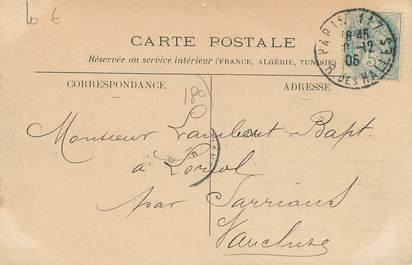 10 €
PARIS 117
8 45
12
05
R. DES HALLES
CARTE POSTALE
Réservée au service intérieur (FRANCE, ALGÉRIE, TUNISIE)
CORRESPONDANCE
ADRESSE
180
Monsieur Lambert Bapt.
à Loriol
par Sarrians
Vaucluse